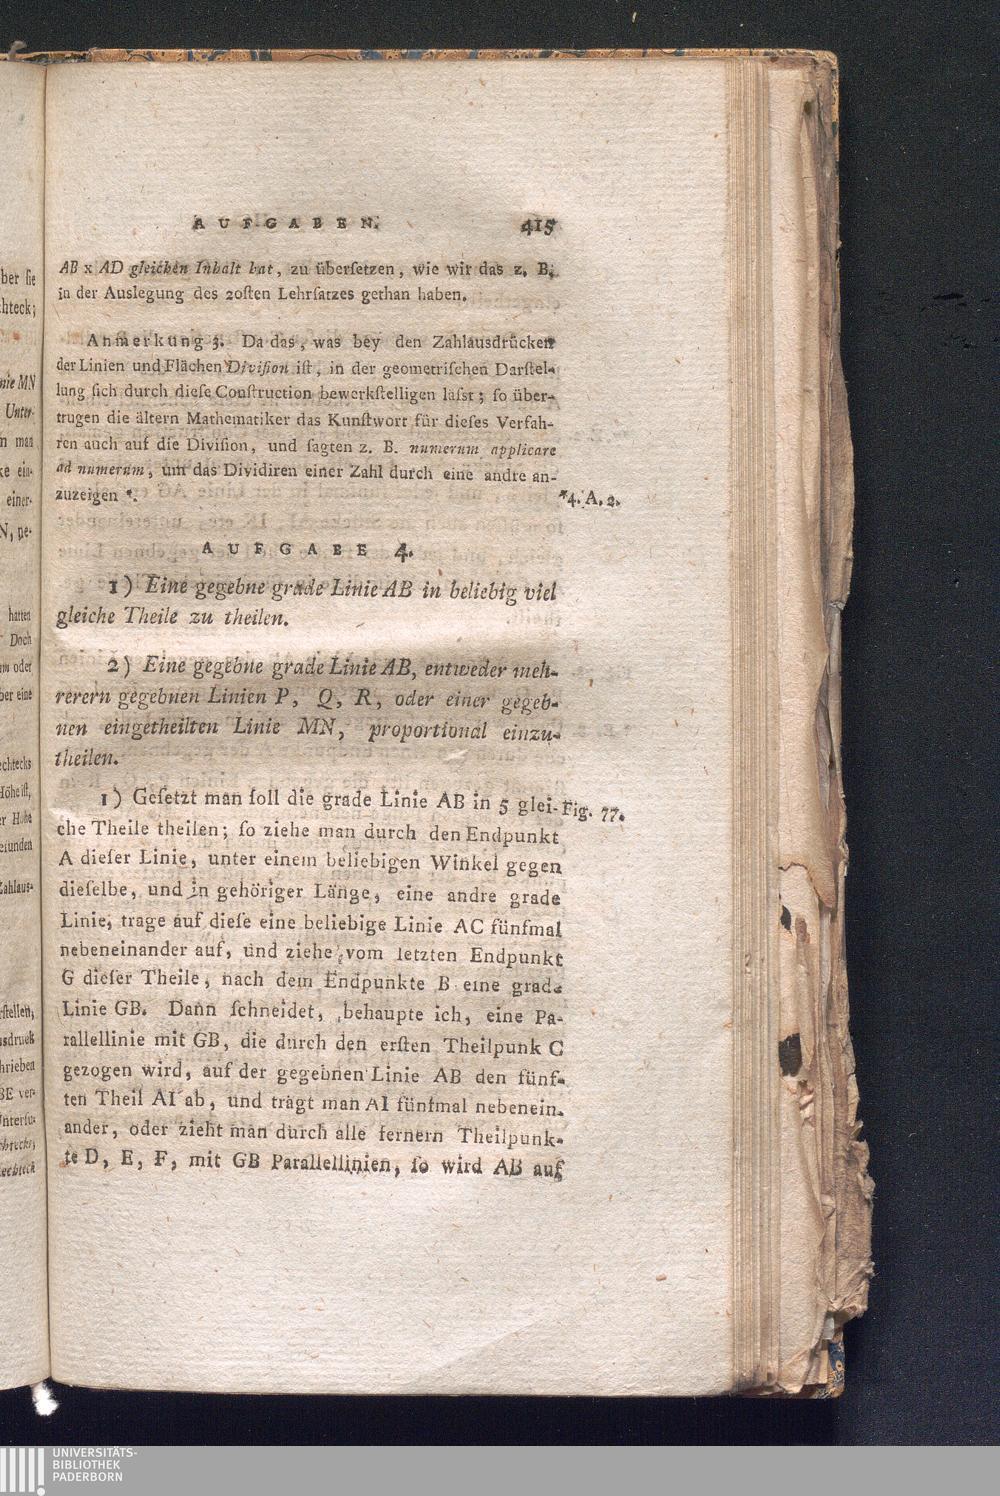 AUFGABEN. 415
AB x AD gleichen Inhalt hat, zu überſetzen, wie wir das z. B.
in der Auslegung des 20ſten Lehrſatzes gethan haben.
Anmerkung 3. Da das, was bey den Zahlausdrücken
der Linien und Flächen Diviſion iſt, in der geometriſchen Darſtel-
lung ſich durch dieſe Conſtruction bewerkſtelligen läſst; ſo über-
trugen die ältern Mathematiker das Kunſtwort für dieſes Verfah-
ren auch auf die Diviſion, und ſagten z. B. numerum applicare
ad numerum, um das Dividiren einer Zahl durch eine andre an-
zuzeigen *. *4. A. 2.
AUFGABE 4.
1) Eine gegebne grade Linie AB in beliebig viel
gleiche Theile zu theilen.
2) Eine gegebne grade Linie AB, entweder meh-
rerern gegebnen Linien P, Q, R, oder einer gegeb-
nen eingetheilten Linie MN, proportional einzu-
theilen.
1) Geſetzt man ſoll die grade Linie AB in 5 glei- Fig. 77.
che Theile theilen; ſo ziehe man durch den Endpunkt
A dieſer Linie, unter einem beliebigen Winkel gegen
dieſelbe, und in gehöriger Länge, eine andre grade
Linie, trage auf dieſe eine beliebige Linie AC fünfmal
nebeneinander auf, und ziehe vom letzten Endpunkt
G dieſer Theile, nach dem Endpunkte B eine grade
Linie GB. Dann ſchneidet, behaupte ich, eine Pa-
rallellinie mit GB, die durch den erſten Theilpunk C
gezogen wird, auf der gegebnen Linie AB den fünf-
ten Theil AI ab, und trägt man AI fünfmal nebenein-
ander, oder zieht man durch alle fernern Theilpunk-
te D, E, F, mit GB Parallellinien, ſo wird AB auf
UNIVERSITÄTS-
BIBLIOTHEK
PADERBORN